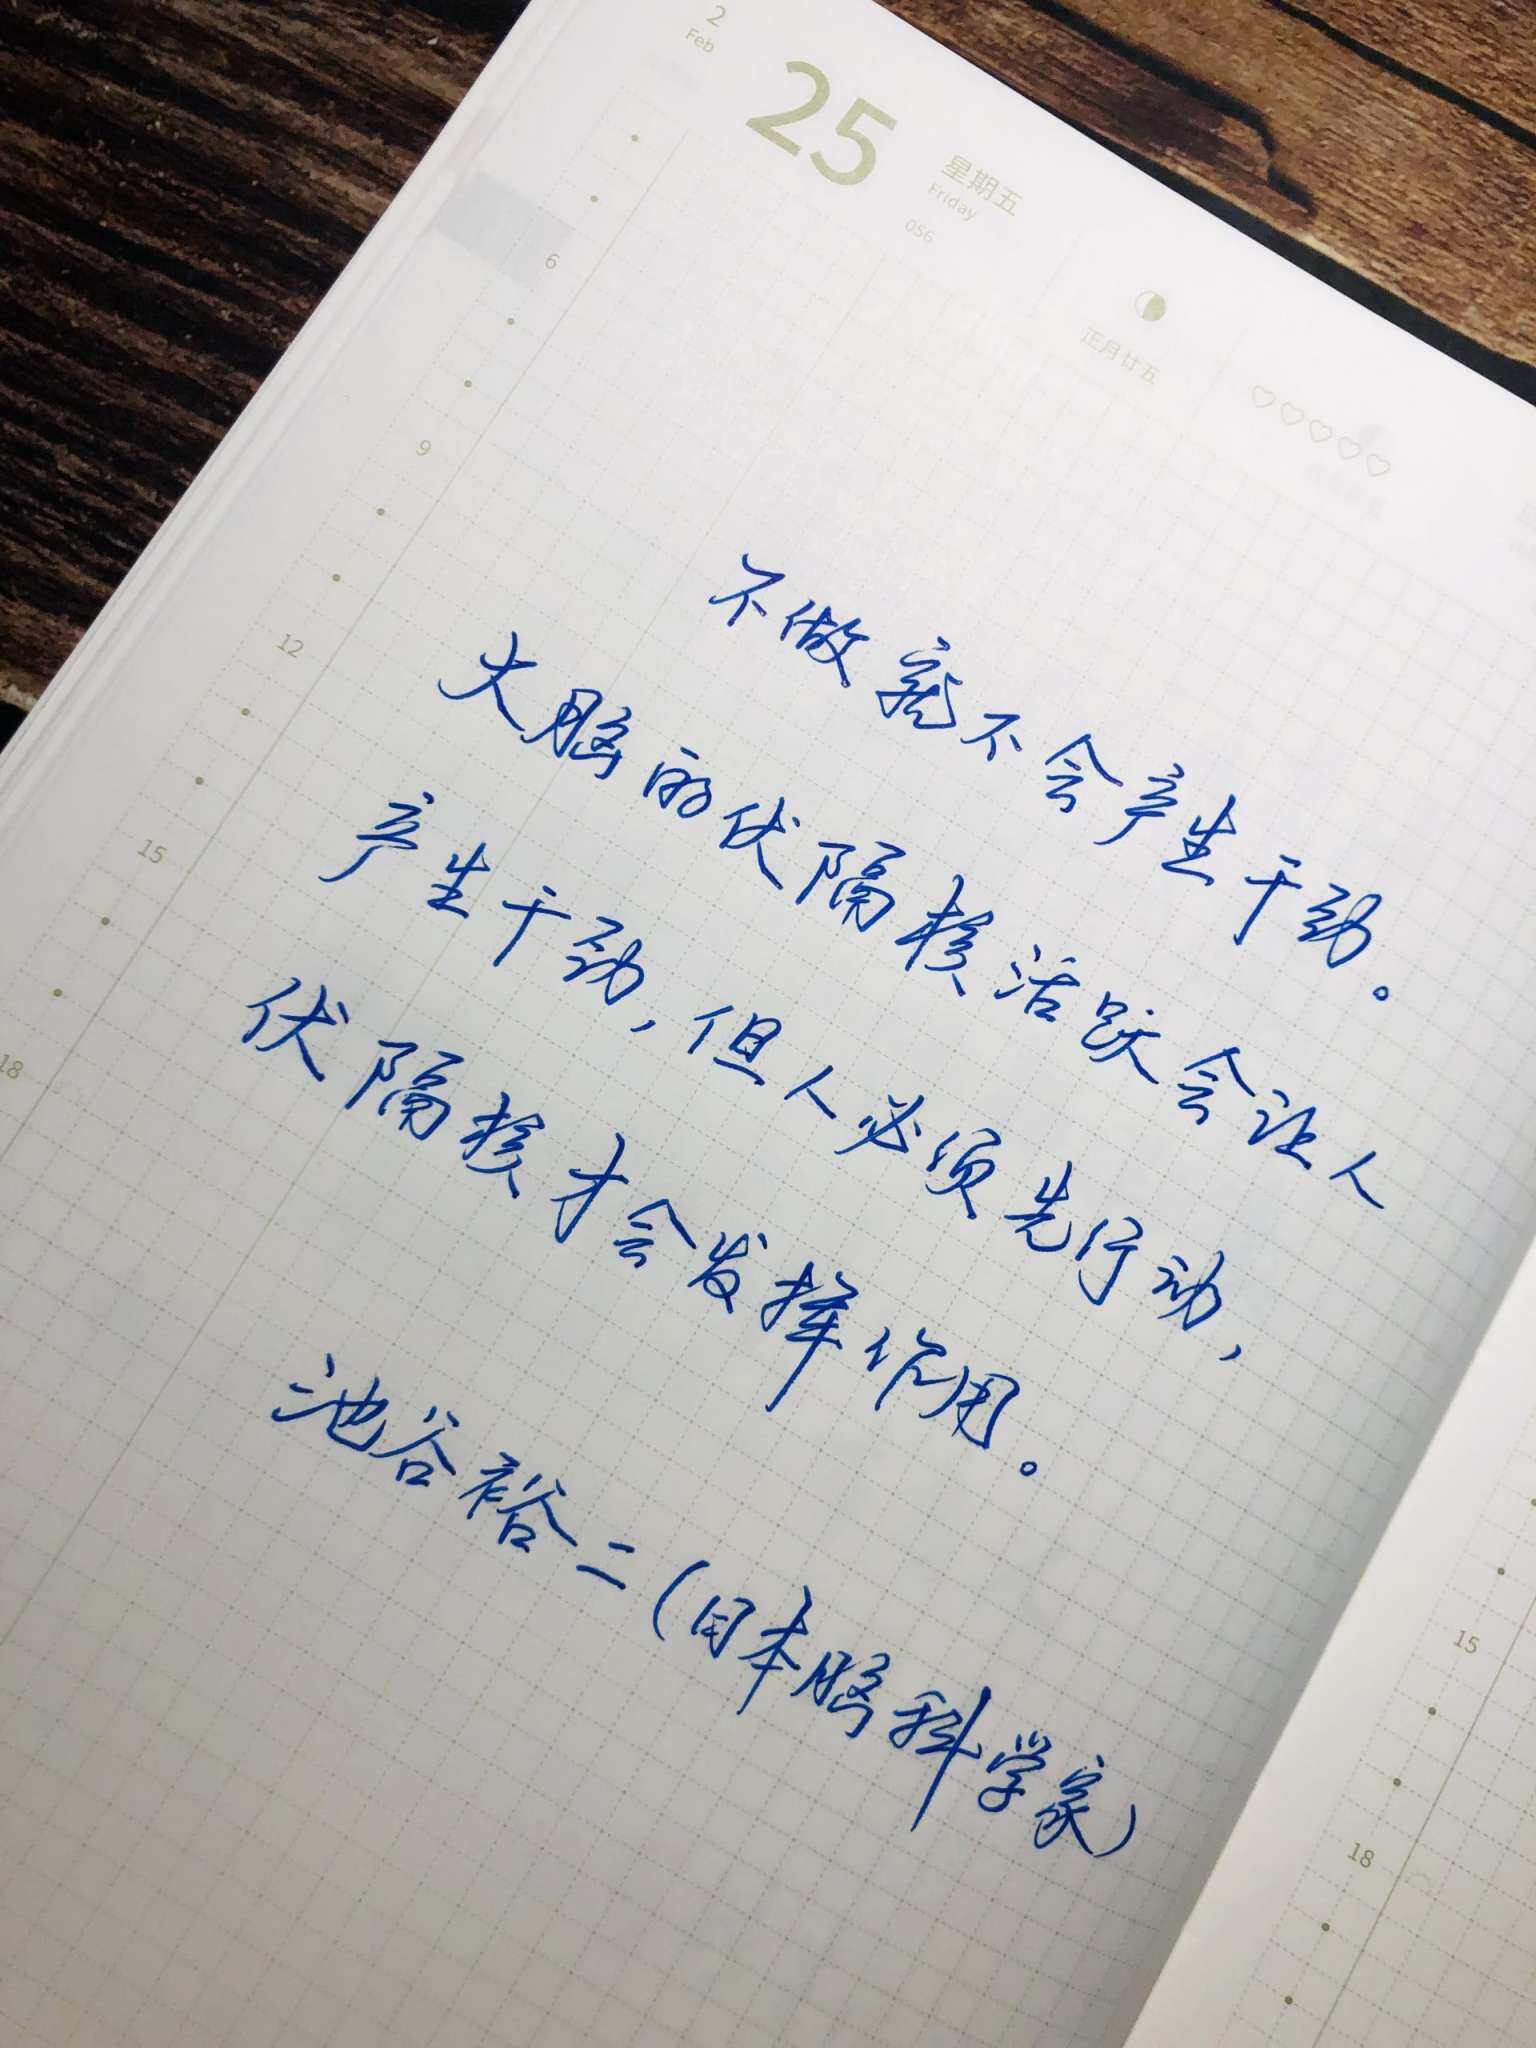 2
Feb
25
星期五
Friday
056
正月廿五
6
9
12
15
18
不做就不会产生干劲。
大脑的伏隔核活跃会让人
产生干劲,但人必须先行动,
伏隔核才会发挥作用。
池谷裕二(日本脑科学家)
15
18